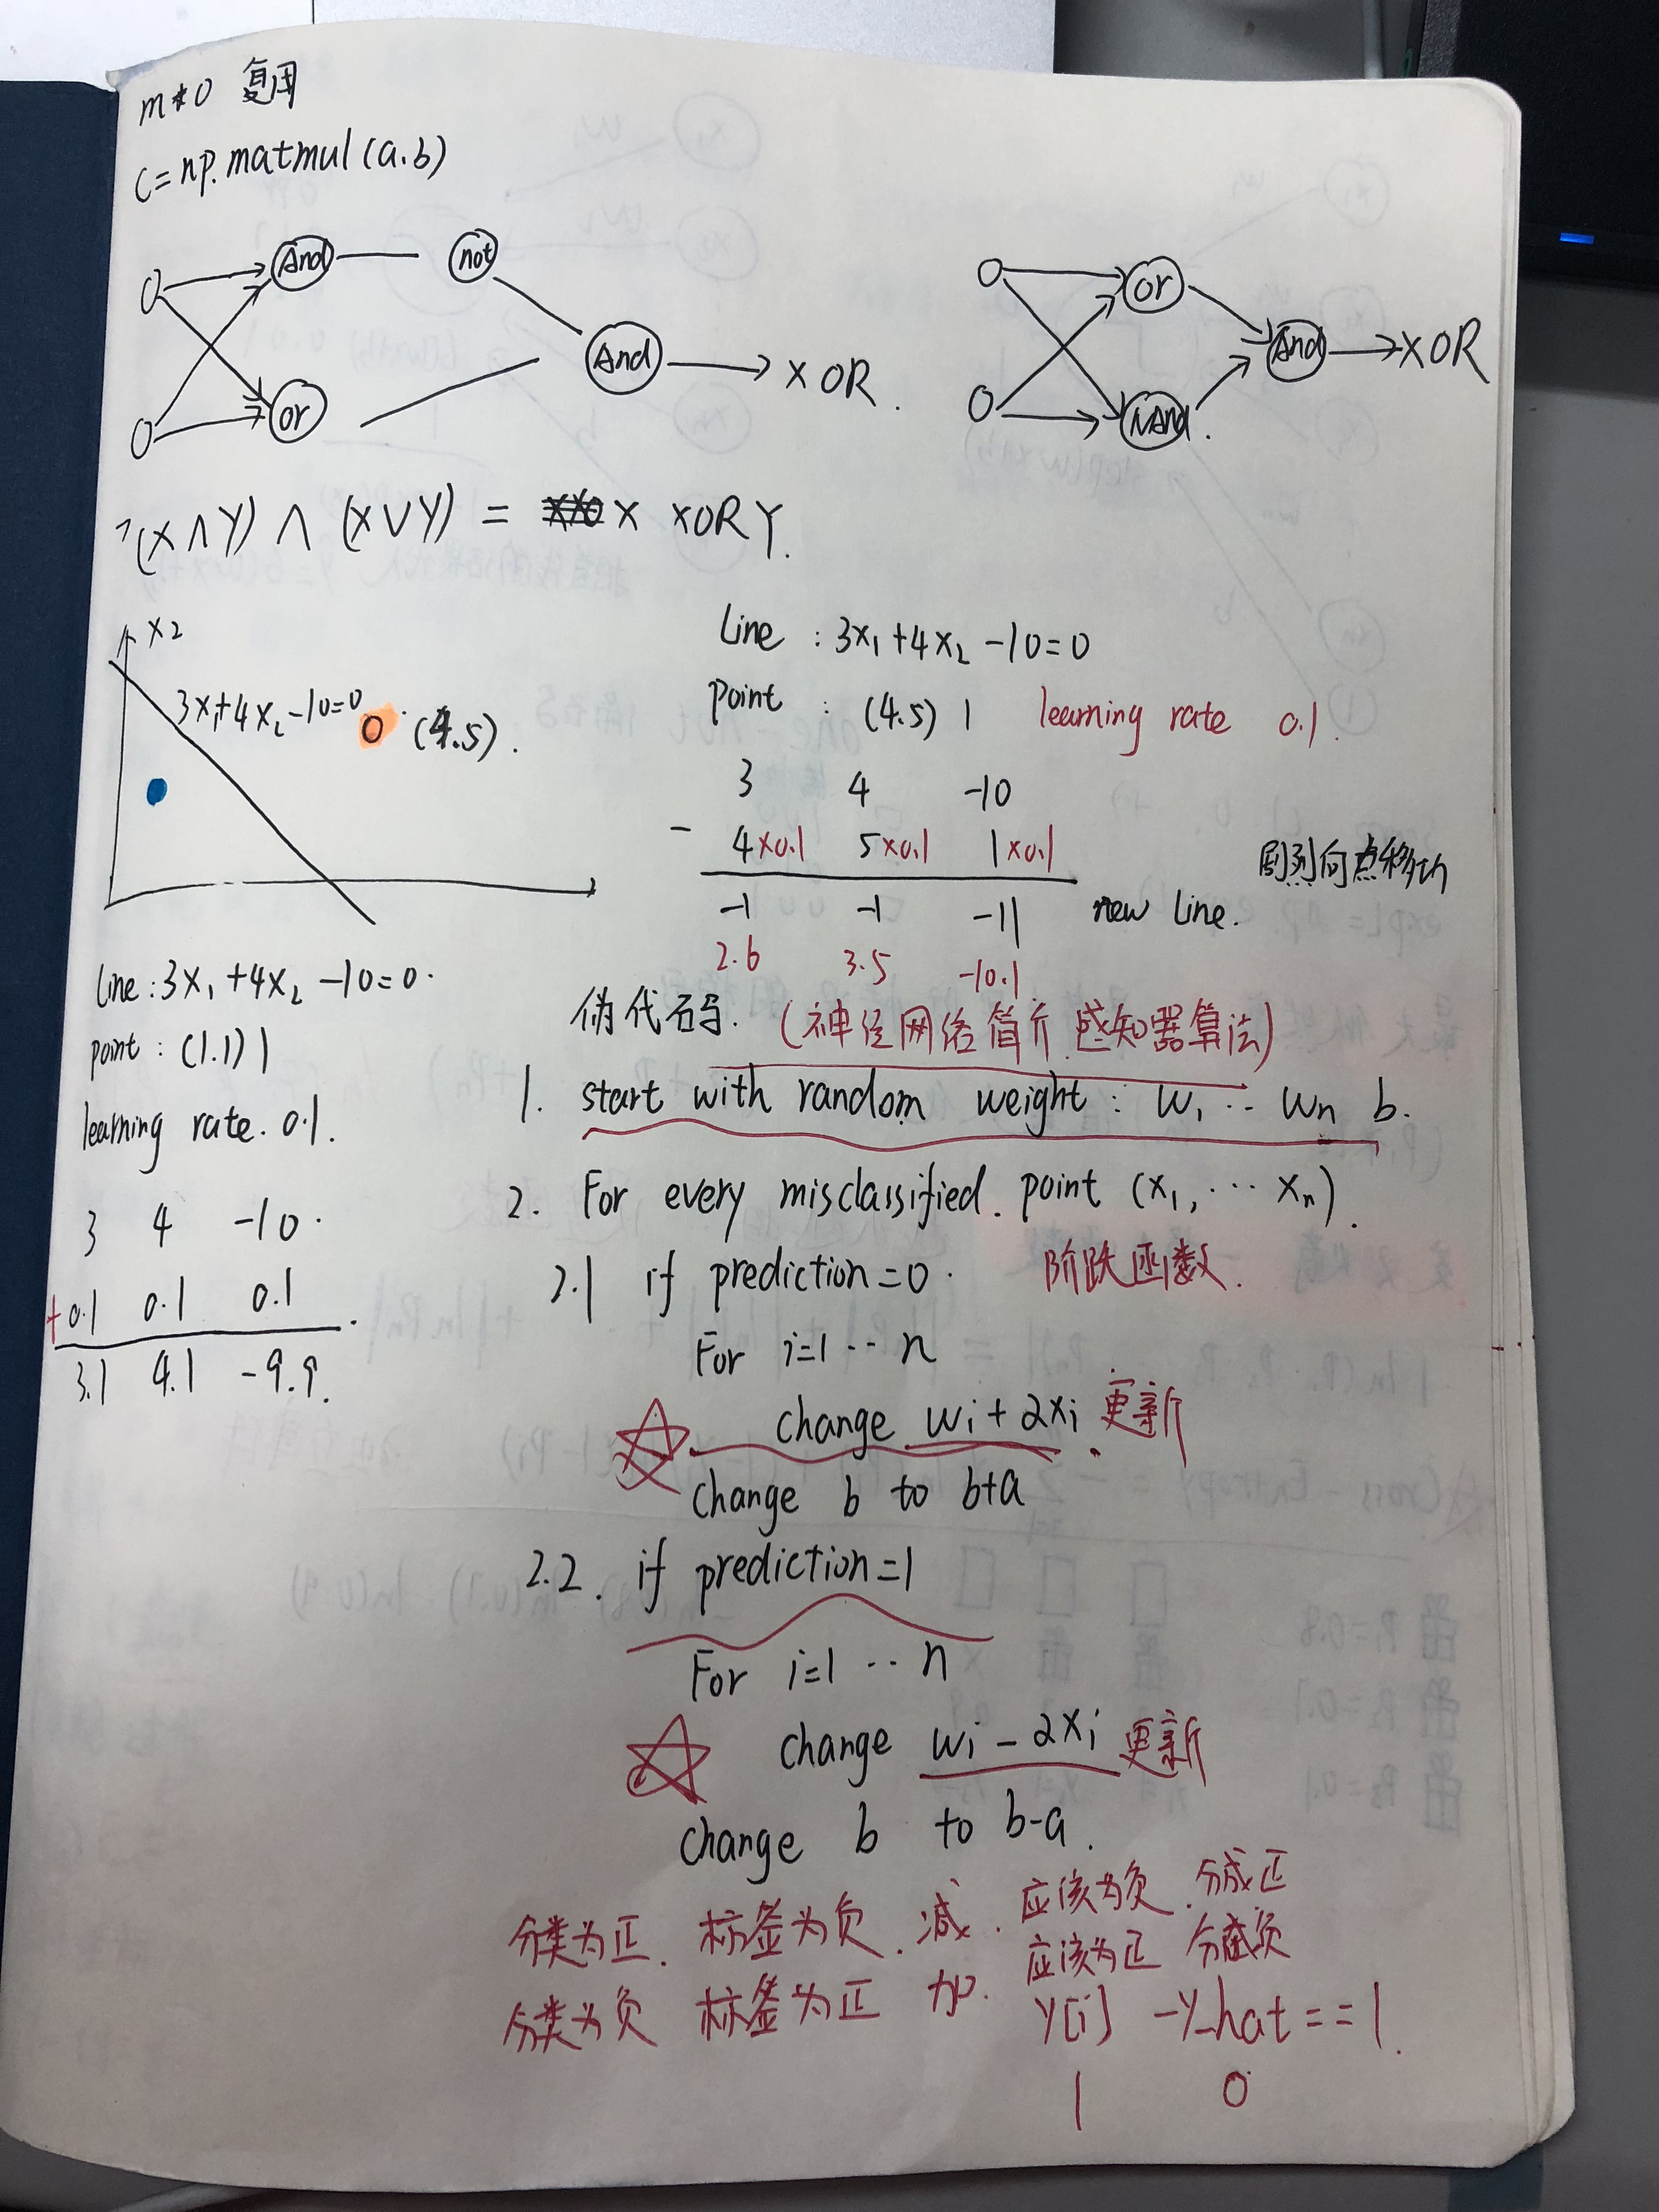 m*0 复用
c=np.matmul(a.b)
And
not
or
And
XOR.
or
NAnd.
And
XOR
¬(X∧Y) ∧ (X∨Y) = X XOR Y.
x2
3x₁+4x₂-10=0
(4.5).
Line : 3x₁+4x₂-10=0
point : (4.5) 1 learning rate 0.1.
3 4 -10
- 4×0.1 5×0.1 1×0.1
剧烈向点移动
-1 -1 -11 new Line.
2.6 3.5 -10.1
Line:3x₁+4x₂-10=0.
point:(1.1) 1
learning rate. 0.1.
3 4 -10.
+0.1 0.1 0.1
3.1 4.1 -9.9.
伪代码. (神经网络简介 感知器算法)
1. start with random weight: w₁ ·· wn b.
2. For every misclassified. point (x₁, ··· xn).
2.1 if prediction=0. 阶跃函数.
For i=1 ·· n
change wi+αxi 更新
change b to b+a
2.2. if prediction=1
For i=1 ·· n
change wi-αxi 更新
change b to b-a.
分类为正. 标签为负. 减. 应该为负. 分成正
应该为正 分成负
分类为负 标签为正 加.
y[i] -y_hat==1.
1 0